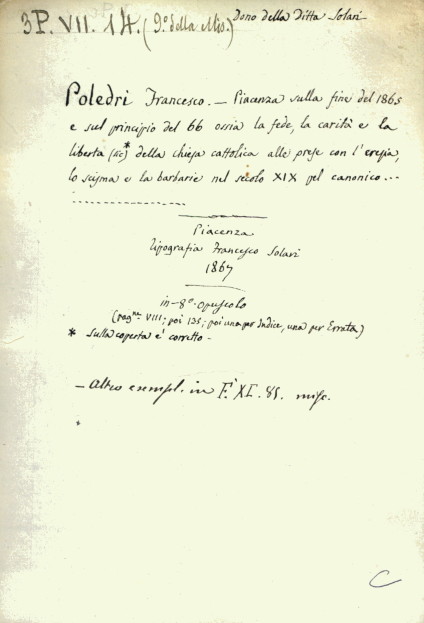 3P. VII. 14. (9.º della Mis.) Dono della Ditta Solari
Poledri Francesco. — Piacenza sulla fine del 1865
e sul principio del 66 ossia la fede, la carità e la
liberta (sic)* della chiesa cattolica alle prese con l'eresia,
lo scisma e la barbarie nel secolo XIX pel canonico ...
Piacenza
tipografia Francesco Solari
1867
in-8º. opuscolo
(pagne VIII; poi 135; poi una per Indice, una per Errata)
* Sulla coperta è corretto -
- Altro esempl. in F. XI. 85. misc.
*
C